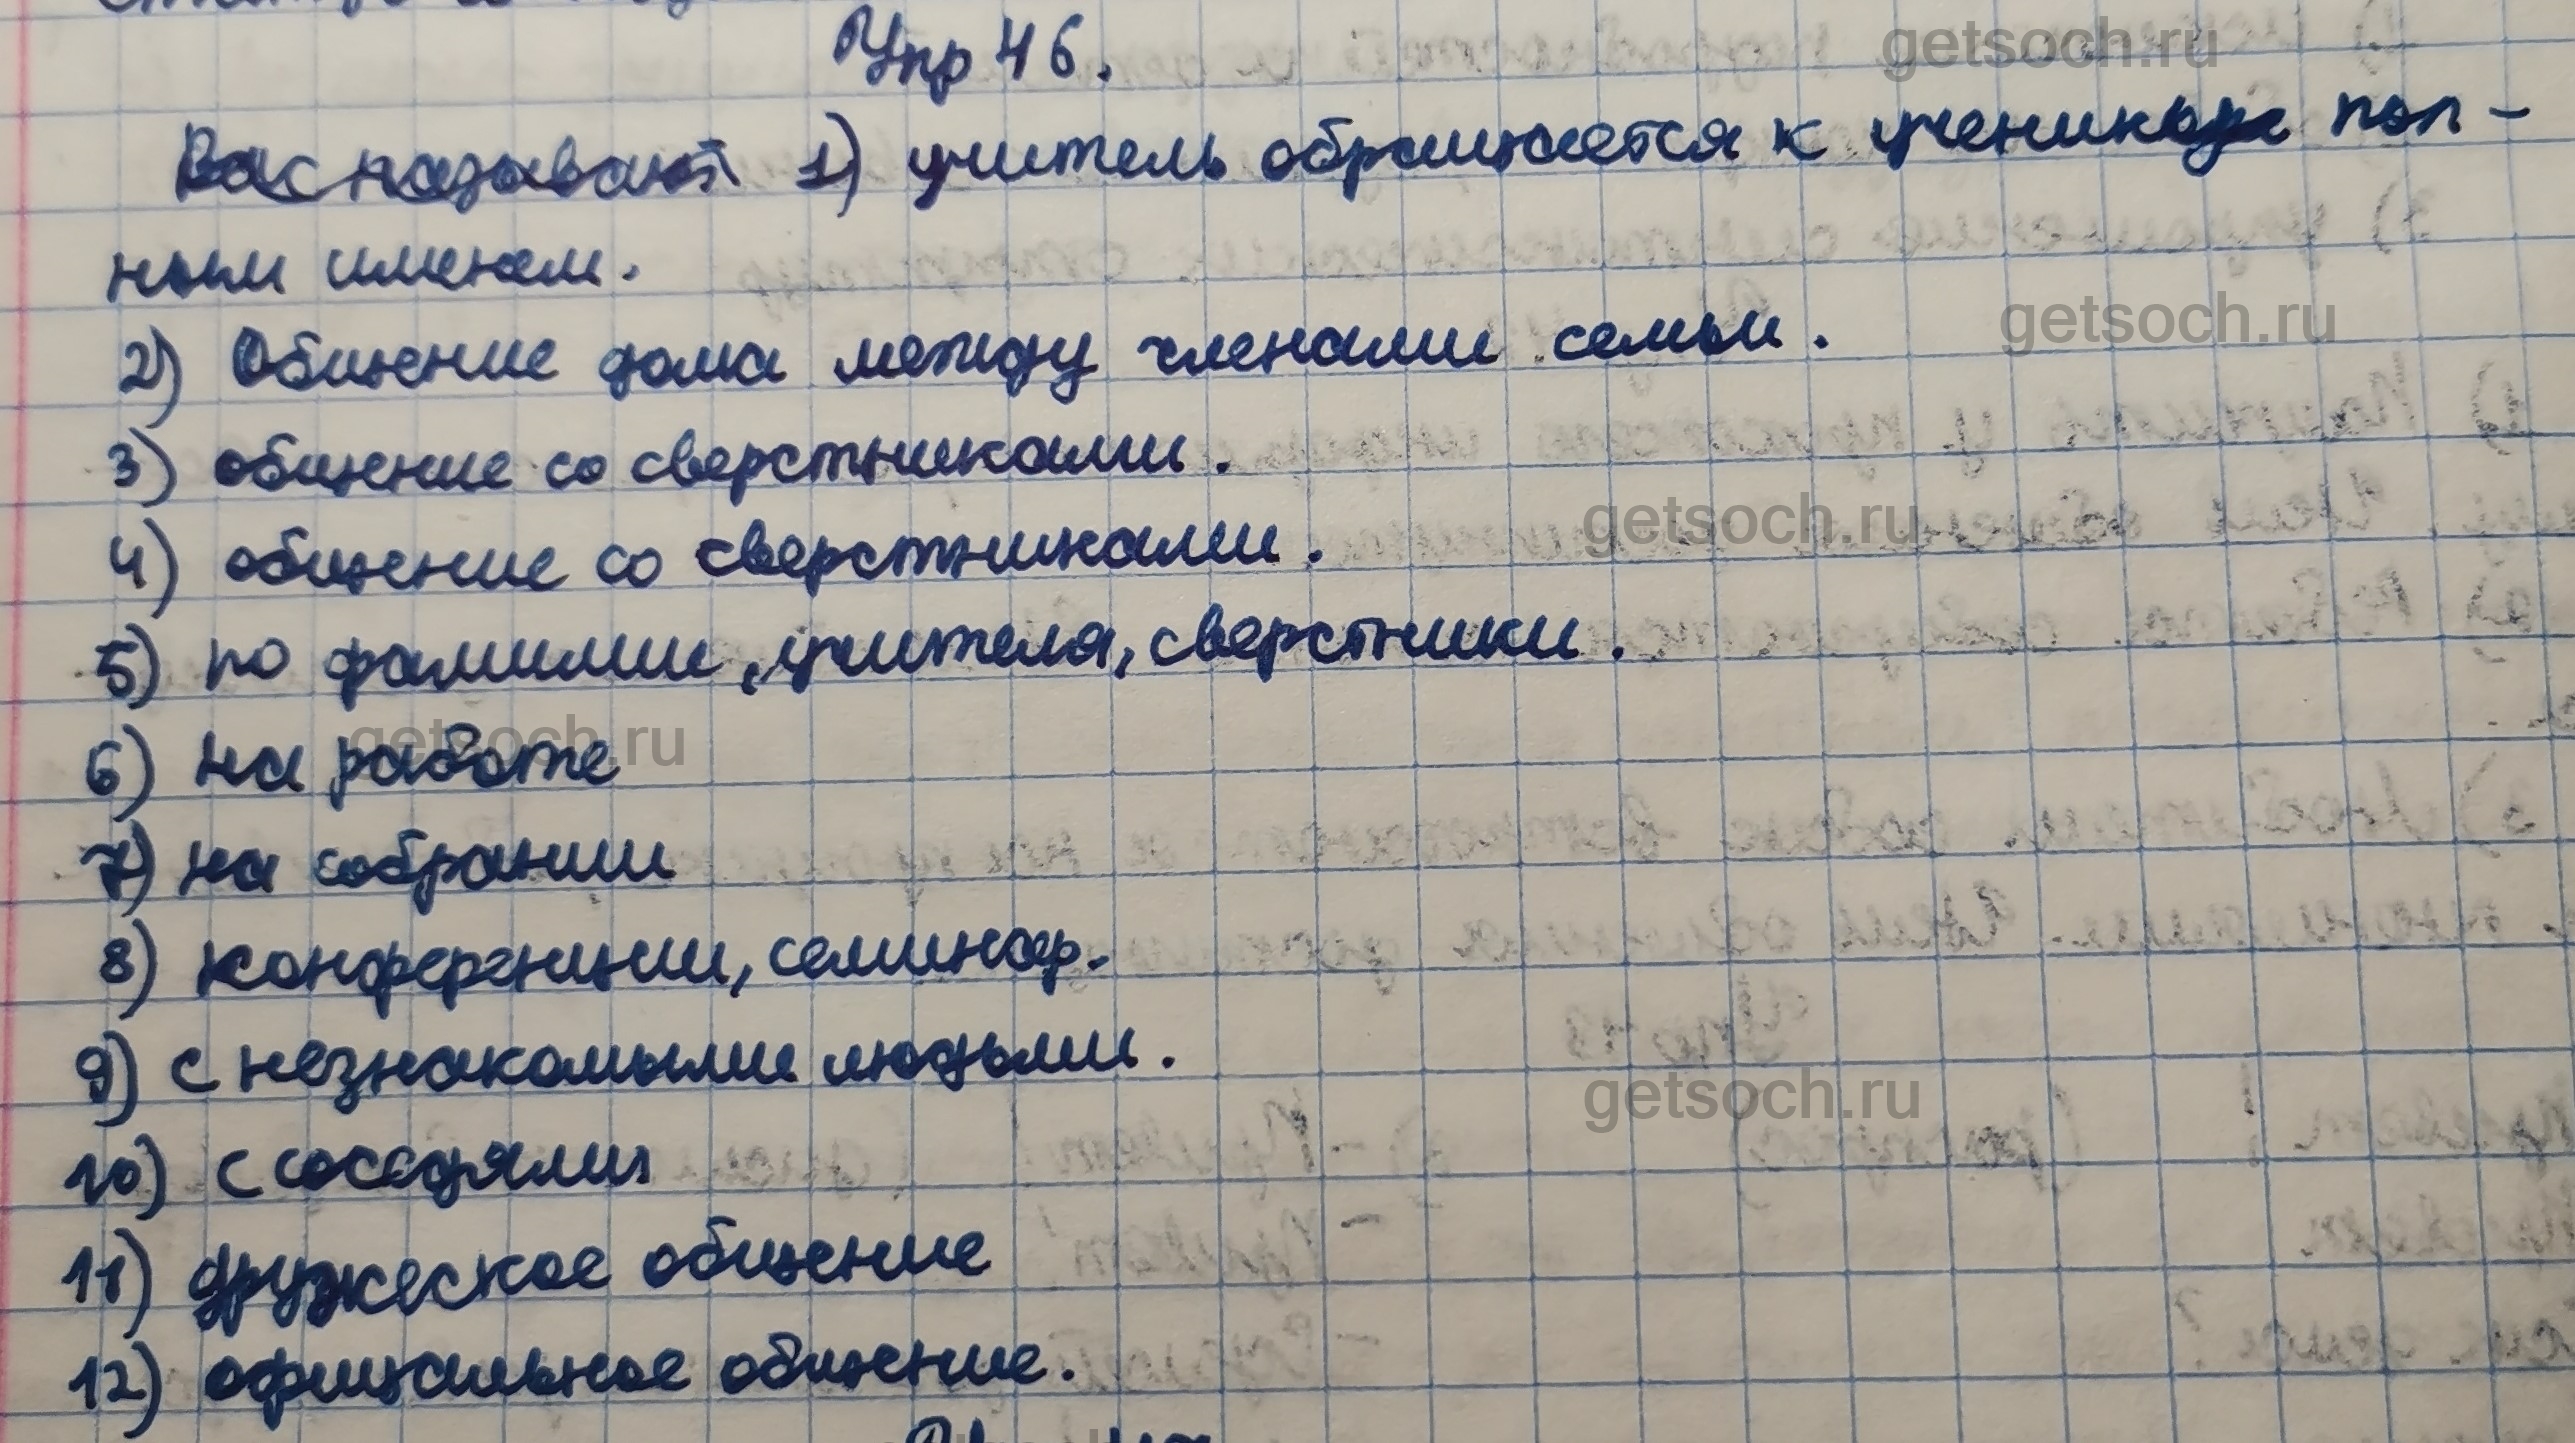 Упр 46.
Вас называют 1) учитель обращается к ученикам пол-
ным именем.
2) Общение дома между членами семьи.
3) общение со сверстниками.
4) общение со сверстниками.
5) по фамилии, учителя, сверстники.
6) на работе
7) на собрании
8) конференции, семинар.
9) с незнакомыми людьми.
10) с соседями
11) дружеское общение
12) официальное общение.
getsoch.ru
getsoch.ru
getsoch.ru
getsoch.ru
getsoch.ru